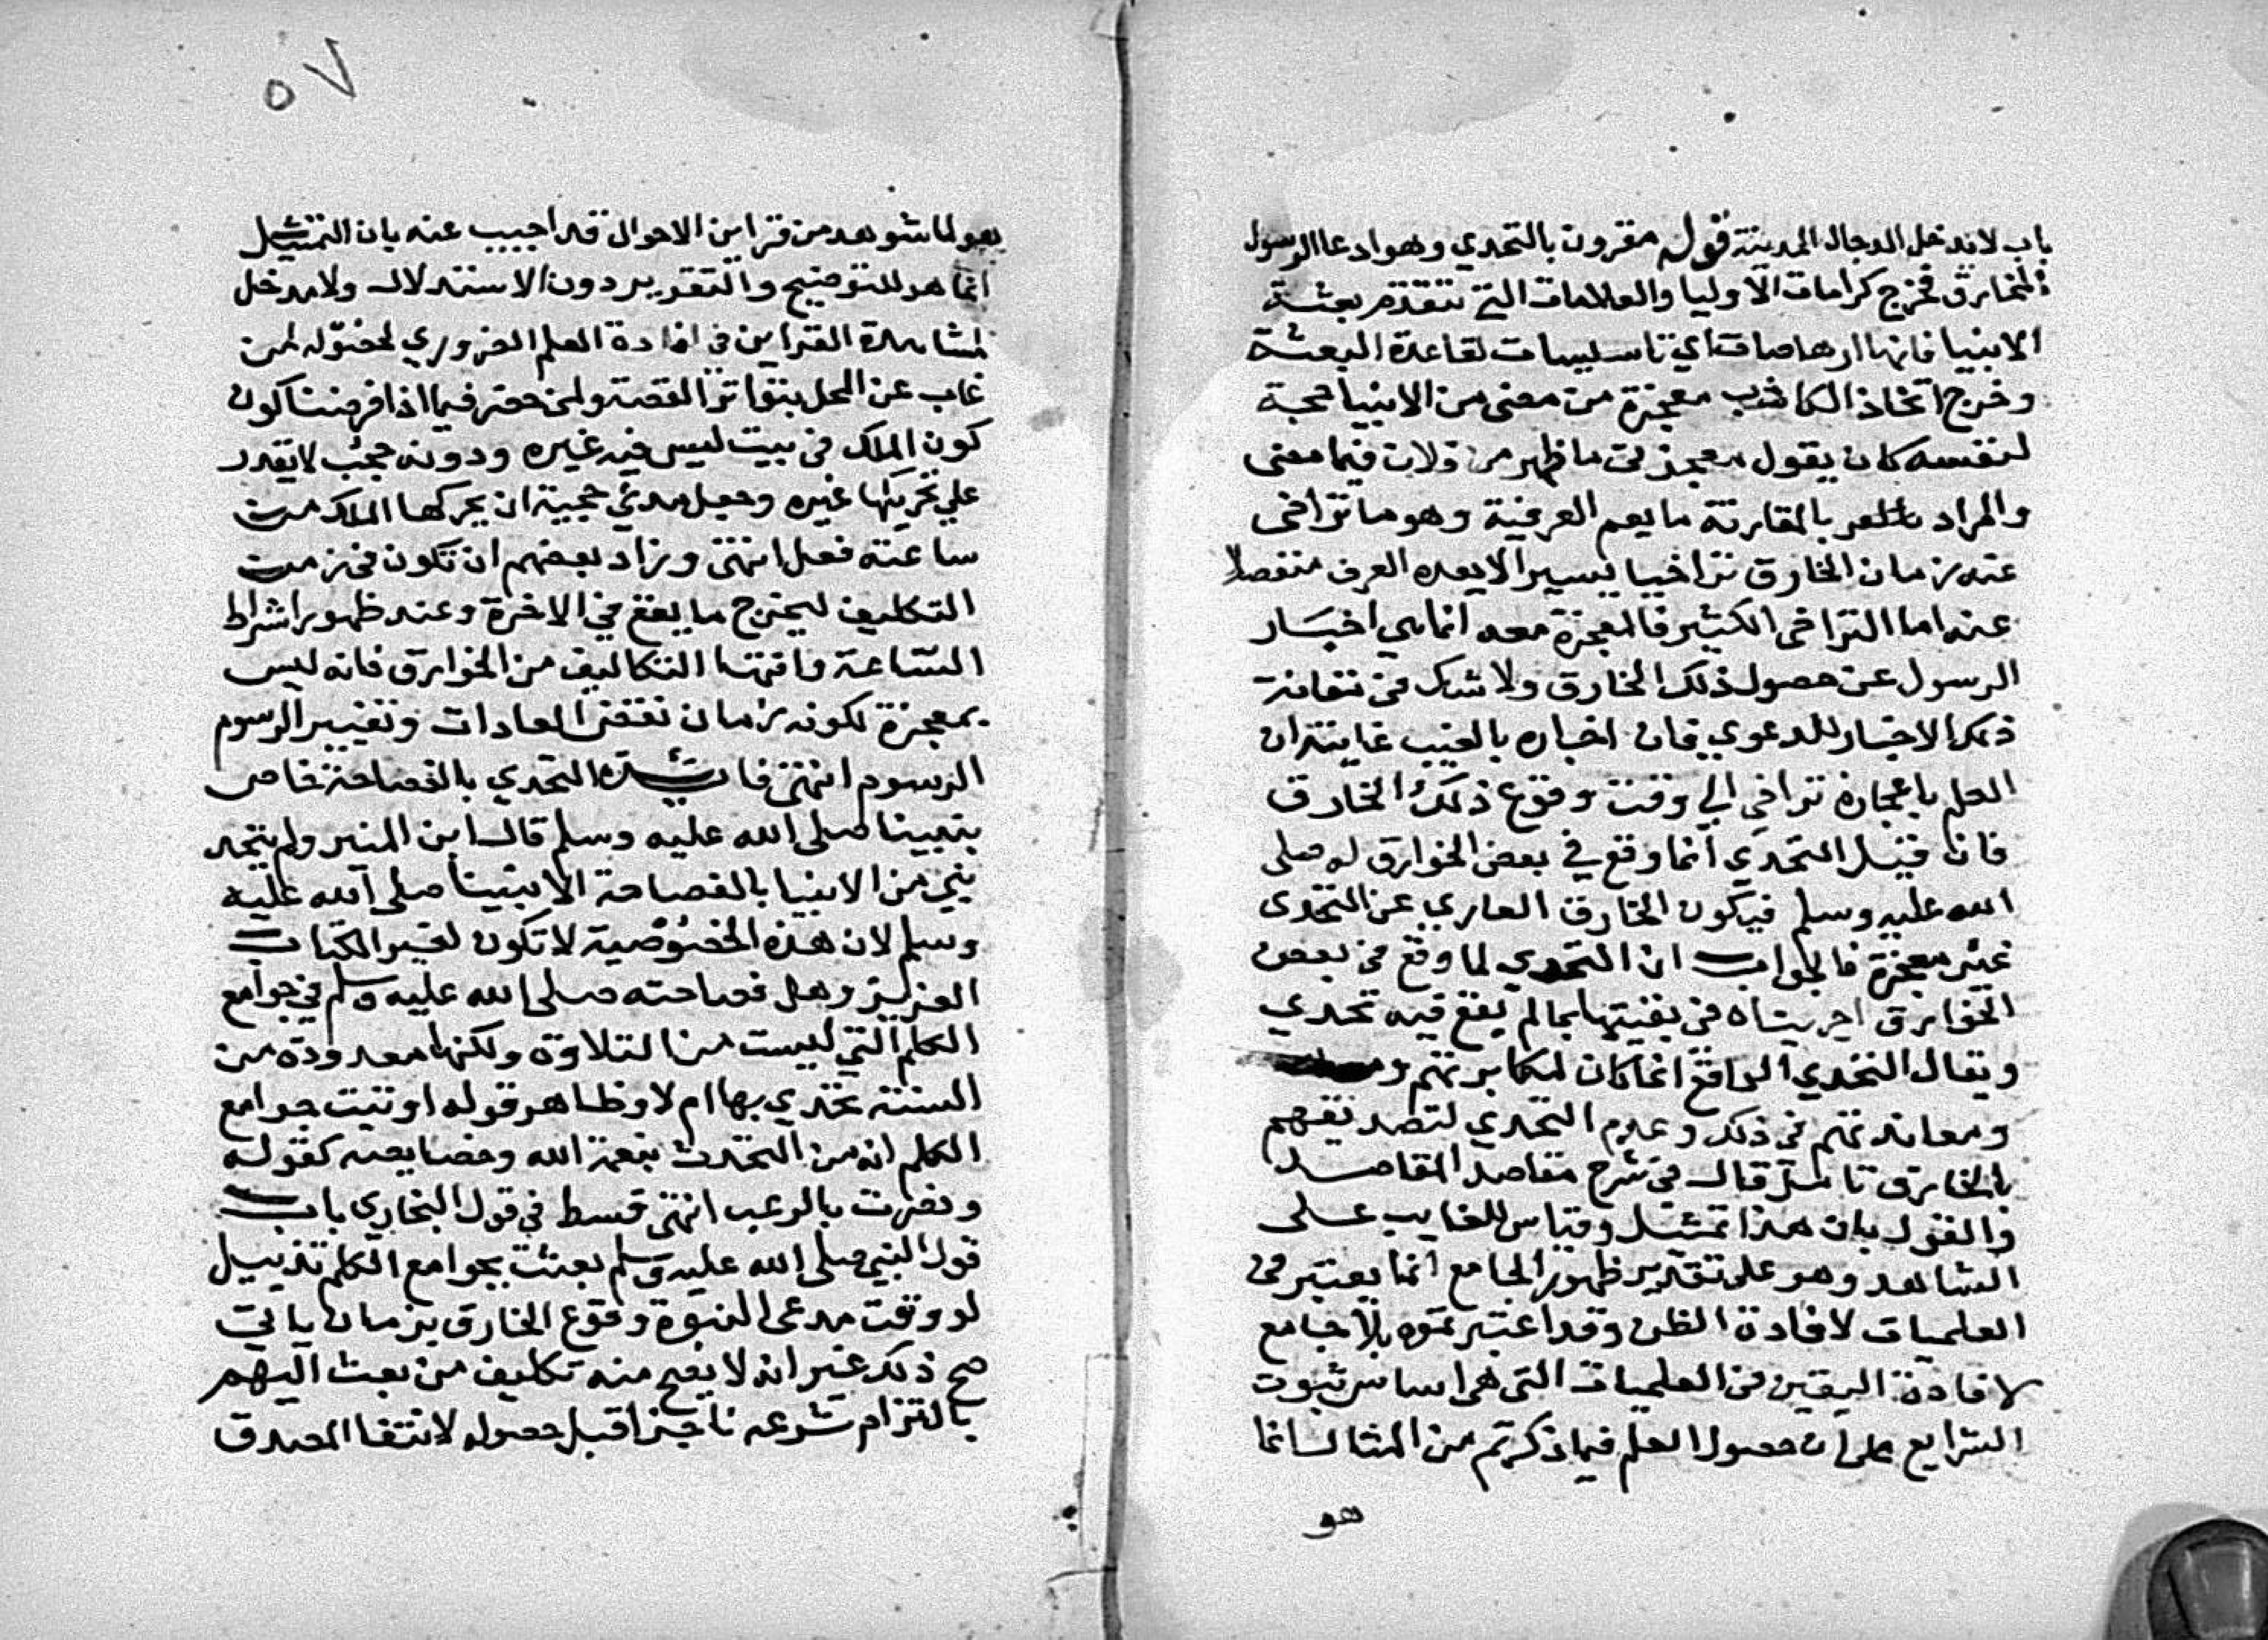 باب لا يدخل الدجال المدينة قوله مقرون بالتحدي وهو ادعا الرسول
الخارق فخرج كرامات الاوليا والعلامات التي تتقدم بعثة
الانبيا فانها ارهاصات اي تاسيسات لقاعدة البعثة
وخرج اتخاذ الكاذب معجزة من مضى من الانبيا حجة
لنفسه كان يقول معجزتي ما ظهر من فلان فيما مضى
والمراد بالمقارنة ما يعم العرفية وهو ما تراخى
عنه زمان الخارق تراخيا يسيرا لا يعده العرف منفصلا
عنه اما التراخى الكثير فالمعجزة معه انما هي اخبار
الرسول عن حصول ذلك الخارق ولا شك في مقارنة
ذلك الاخبار للدعوي فان اخباره بالغيب غايته ان
العلم باعجازه تراخي الي وقت وقوع ذلك الخارق
فان قيل التحدي انما وقع في بعض الخوارق له صلى
الله عليه وسلم فيكون الخارق العاري عن التحدى
غير معجزة فالجواب ان التحدي لما وقع في بعض
الخوارق اجريناه في بقيتها بما لم يقع فيه تحدي
ويقال التحدي الواقع انما كان لمكابرتهم
ومعاندتهم في ذلك وعدم التحدي لتصديقهم
بالخارق قال في شرح مقاصد المقاصد
والقول بان هذا تمثيل وقياس للغايب على
الشاهد وهو على تقدير ظهور الجامع انما يعتبر في
العمليات لافادة الظن وقد اعتبرتموه بلا جامع
لافادة اليقين في العلميات التي هي اساس ثبوت
الشرايع على ان حصول العلم فيما ذكرتم من المثال انما
هو
٥٧
هو لما شوهد من قراين الاحوال قد اجيب عنه بان التمثيل
انما هو للتوضيح والتقرير دون الاستدلال ولا مدخل
لمشاهدة القراين في افادة العلم الضروري لحصوله لمن
غاب عن المحل بتواتر القصة ولمن حضر فيما اذا فرضنا كون
كون الملك في بيت ليس فيه غيره ودونه حجب لا يقدر
علي تحريكها غيره وجعل مدعي حجية ان يحركها الملك من
ساعته ففعل انتهى وزاد بعضهم ان تكون في زمن
التكليف ليخرج ما يقع في الاخرة وعند ظهور اشراط
الساعة وانتها التكاليف من الخوارق فانه ليس
بمعجزة لكونه زمان نقض العادات وتغيير الرسوم
الرسوم انتهى فائدة التحدي بالفصاحة خاص
بنبينا صلى الله عليه وسلم قال ابن المنير ولم يتحد
نبي من الانبيا بالفصاحة الا نبينا صلى الله عليه
وسلم لان هذه الخصوصية لا تكون لغير الكتاب
العزيز وهل فصاحته صلى الله عليه وسلم في جوامع
الكلم التي ليست من التلاوة ولكنها معدودة من
السنة تحدي بها ام لا وظاهر قوله اوتيت جوامع
الكلم انه من التحدث بنعمة الله وخصايصه كقوله
ونصرت بالرعب انتهى قسط في قول البخاري باب
قول النبي صلى الله عليه وسلم بعثت بجوامع الكلم تذييل
لو وقت مدعى النبوة وقوع الخارق بزمان ياتي
صح ذلك غير انه لا يصح منه تكليف من بعث اليهم
بالتزام شرعه ناجزا قبل حصوله لانتفا المصدق